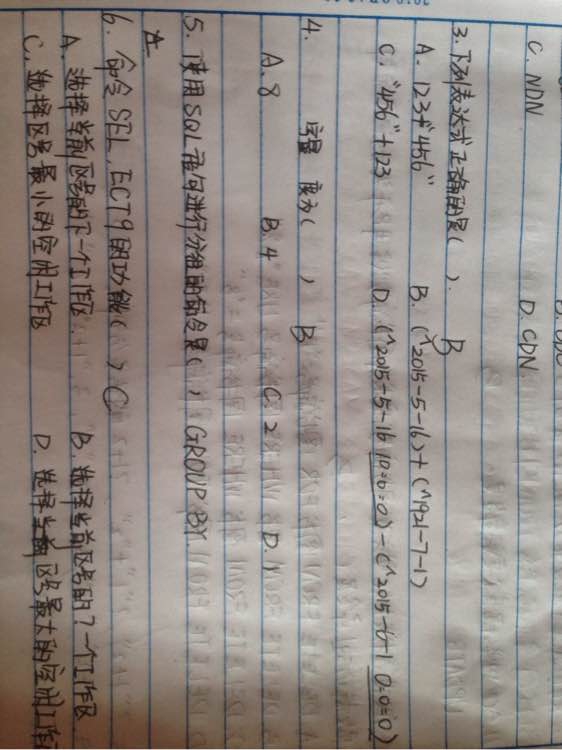 C. NDN D. CDN
3. 下列表达式正确的是( ). B
A. 123+"456" B. (^2015-5-16)+(^1921-7-1)
C. "456"+123 D. (^2015-5-16 10:0:0)-(^2015-6-1 0:0:0)
4. 字量 变为( ) B
A. 8 B. 4 C. 2 D. 1
5. 使用SQL 语句进行分组的命令是( ) GROUP BY
6. 命令 SELECT 9 的功能( ) C
A. 选择当前区号的下一个工作区. B. 选择当前区号的7一个工作区
C. 选择区号最小的空闲工作区 D. 选择区号最大的空闲工作区